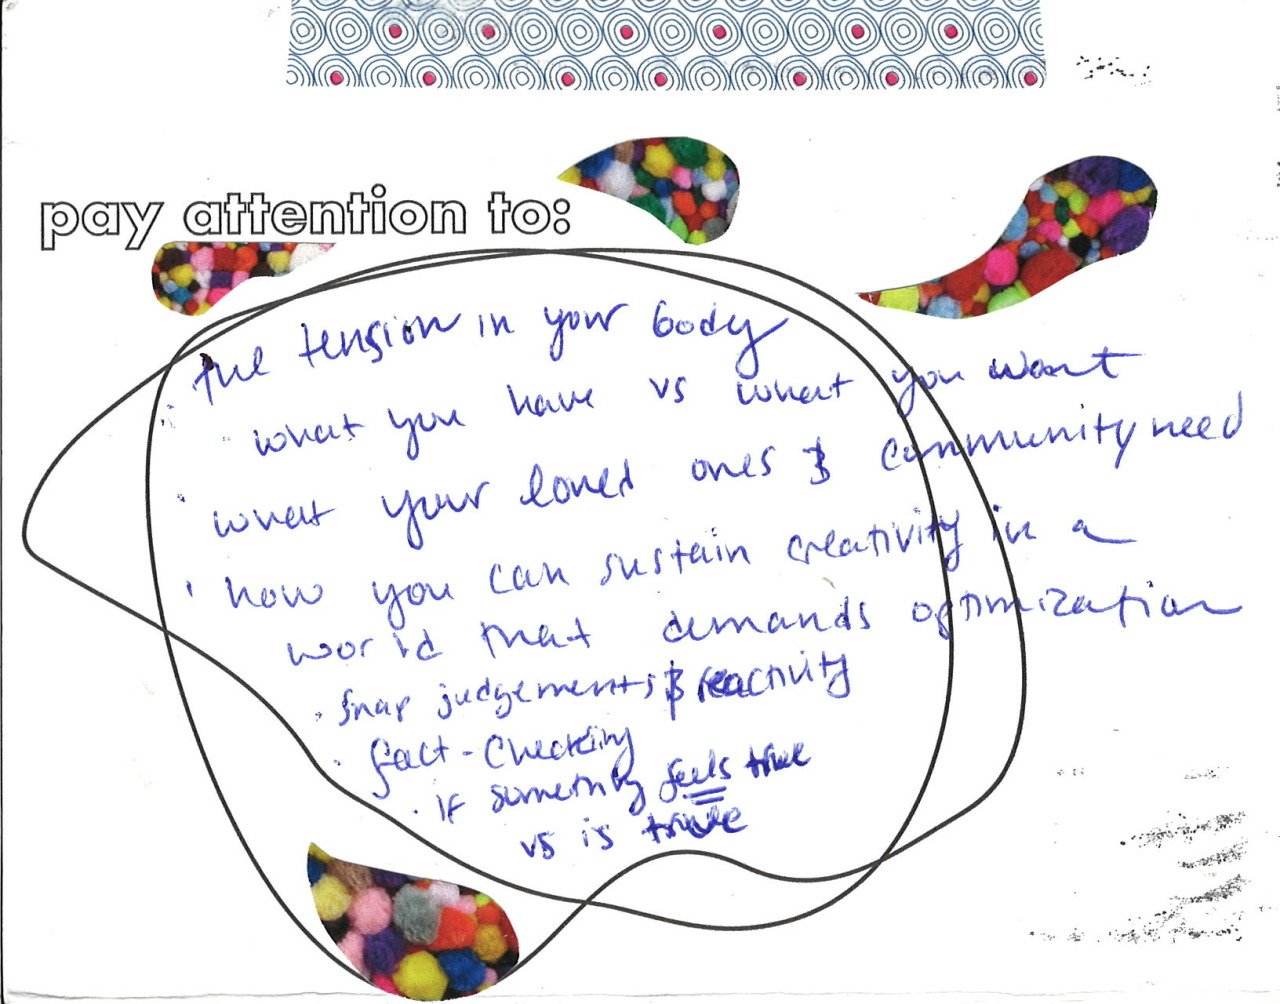 pay attention to:
· the tension in your body
· what you have vs what you want
· what your loved ones & community need
· how you can sustain creativity in a
world that demands optimization
· snap judgements & reactivity
· fact-checking
· if something feels true
vs is true